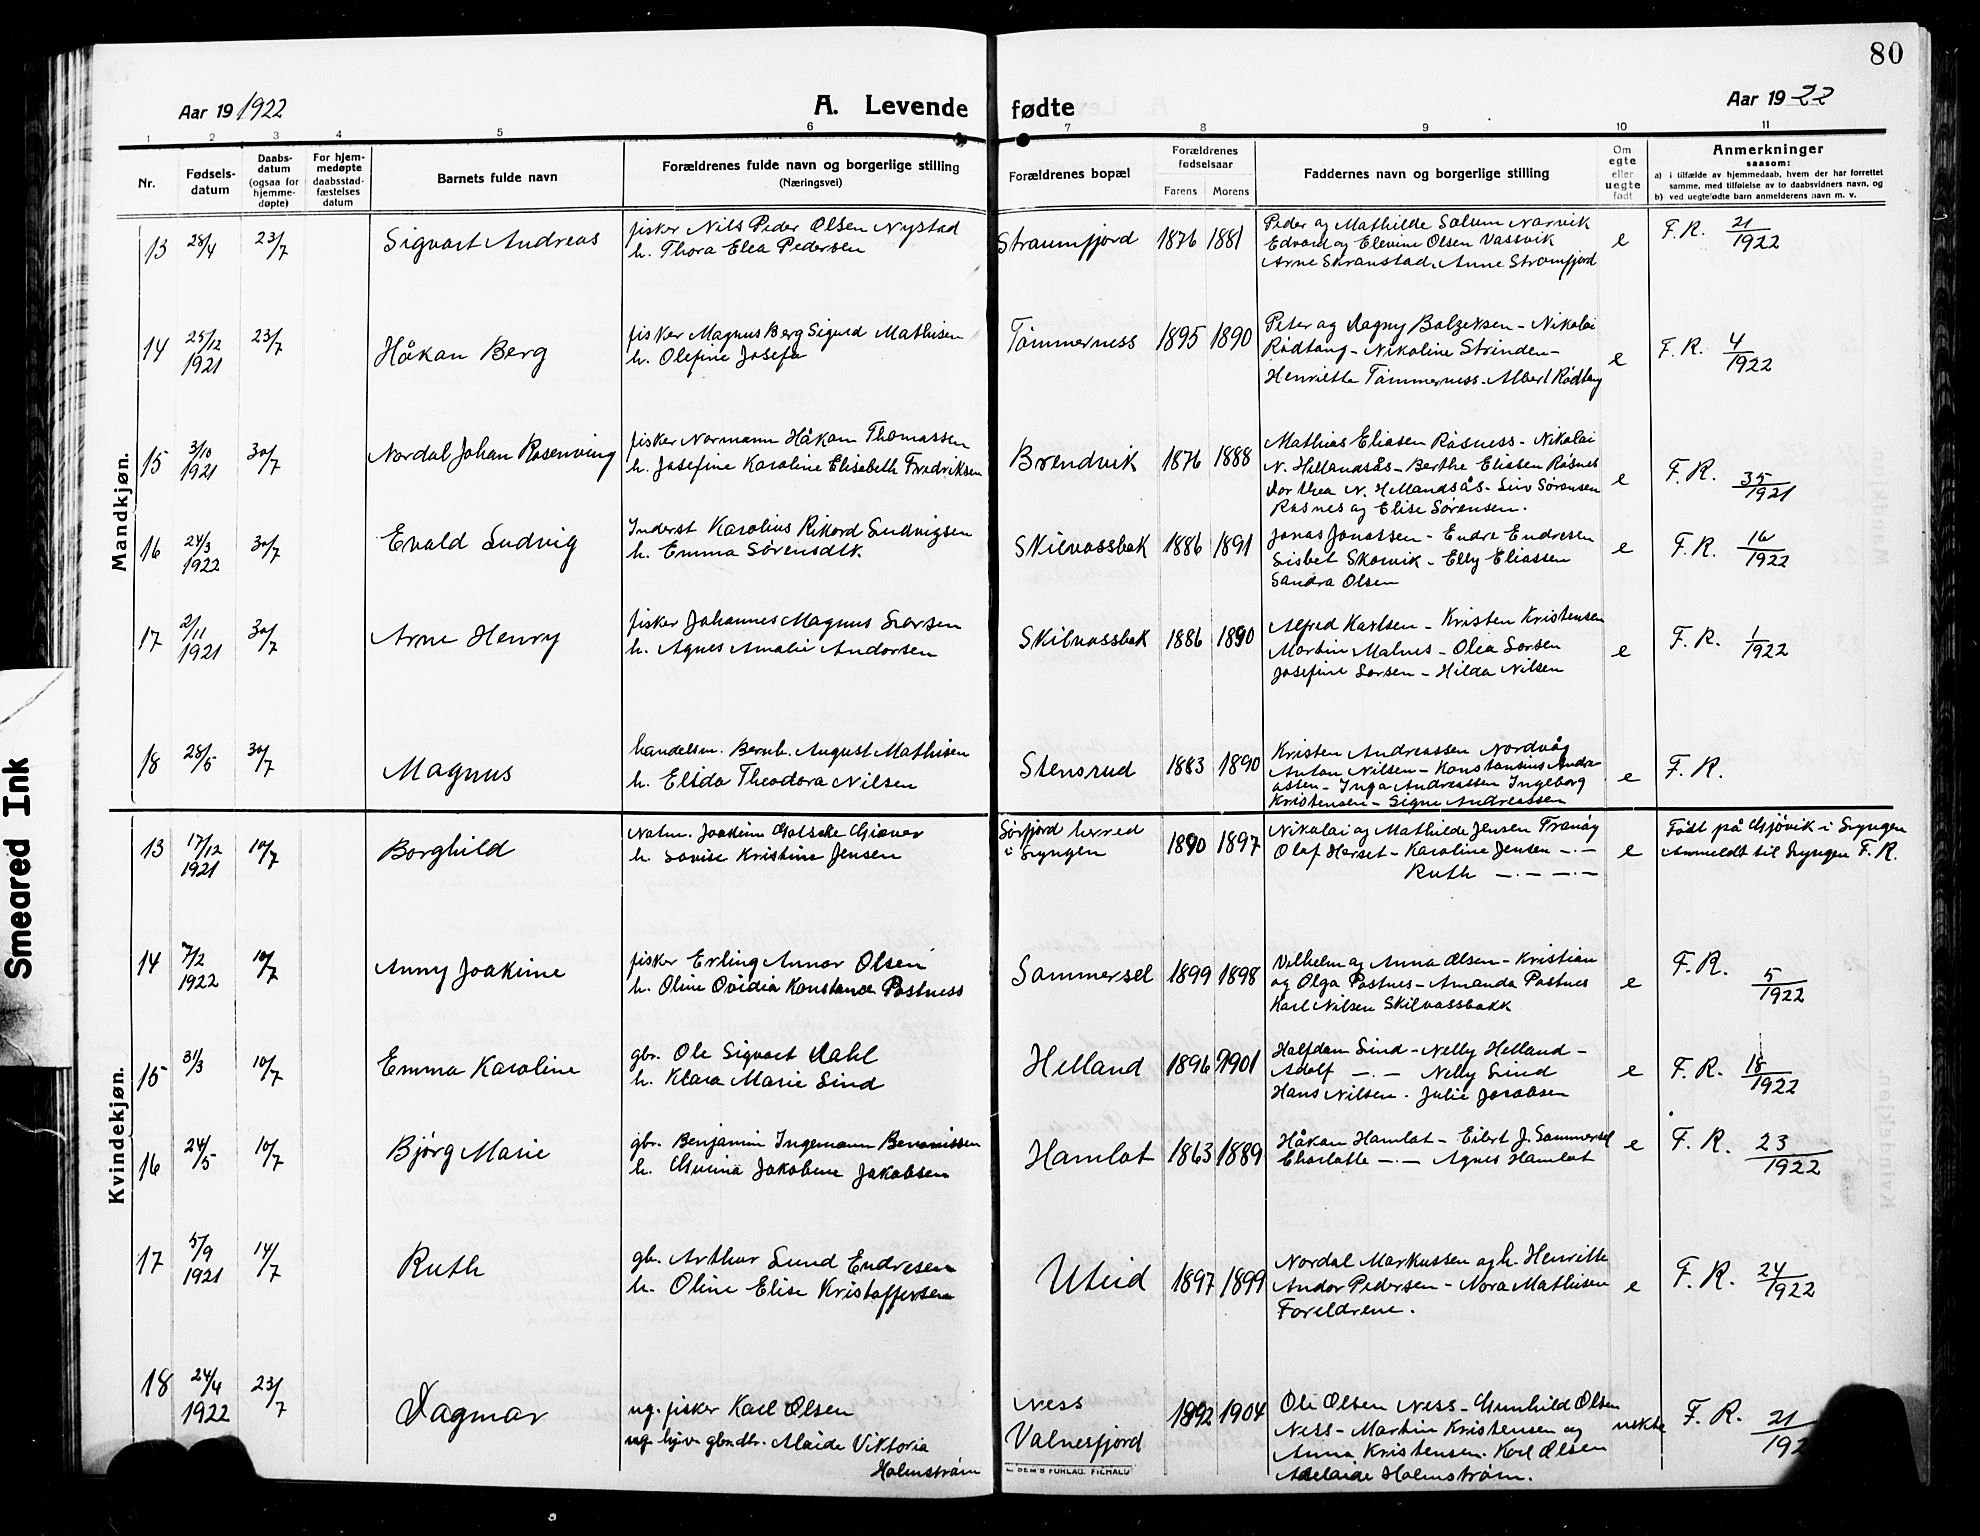 80
Aar 19 1922
A. Levende fødte
Aar 1922
1 2 3 4 5 6 7 8 9 10 11
Nr.
Fødsels-
datum
Daabs-
datum
(ogsaa for
hjemme-
døpte)
For hjem-
medøpte
daabsstad-
fæstelses
datum
Barnets fulde navn
Forældrenes fulde navn og borgerlige stilling
(Næringsvei)
Forældrenes bopæl
Forældrenes
fødselsaar
Farens Morens
Faddernes navn og borgerlige stilling
Om
egte
eller
uegte
født
Anmerkninger
saasom:
a) i tilfælde av hjemmedaab, hvem der har forrettet
samme, med tilføielse av to daabsvidners navn, og
b) ved uegtefødte barn anmelderens navn m. v.
Mandkjøn.
13 28/4 23/7 Sigvart Andreas
fisker Nils Peder Olsen Nystad
h. Thora Elea Pedersen
Straumfjord 1876 1881
Peder og Mathilde Solum Narvik
Edvard og Elevine Olsen Vassvik
Arne Skranstad, Anne Stromfjord
e F.R. 21/1922
14 25/12 1921 23/7 Håkan Berg
fisker Magnus Berg Sigurd Mathisen
h. Olefine Josefa
Tømmerness 1895 1890
Peter og Dagny Balzersen - Nikolai
Rødtang - Nikoline Strinden -
Henriette Tømmerness - Albert Rødtang
e F.R. 4/1922
15 3/10 1921 30/7 Nordal Johan Rosenving
fisker Normann Håkon Thomassen
h. Josefine Karoline Elisabeth Fredriksen
Brendvik 1876 1888
Mathias Eliasen Råsness - Nikolai
N. Hellandsås - Berthe Eliasen Råsnes
Dorthea N. Hellandsås - Siv Sørensen
Råsnes og Elise Sørensen.
e F.R. 35/1921
16 24/3 1922 30/7 Evald Ludvig
Inderst Karolius Rikard Ludvigsen
h. Emma Sørensdtk
Skilvassbak 1886 1891
Jonas Jonassen - Endre Endresen
Lisbet Skarvik - Elly Eliassen
Sandra Olsen
e F.R. 16/1922
17 2/11 1921 30/7 Arne Henry
fisker Johannes Magnus Larsen
h. Agnes Amalie Andorsen
Skilvassbak 1886 1890
Alfred Karlsen - Kristen Kristensen
Martin Malnes - Olea Larsen
Josefine Larsen - Hilda Nilsen
e F.R. 1/1922
18 28/5 30/7 Magnus
handelsm. Bernh. August Mathisen
h. Elida Theodora Nilsen
Stensrud 1883 1890
Kristen Andreassen Nordvåg
Anton Nilsen - Konstansius Andre
assen - Inga Andreassen Ingeborg
Kristensen - Signe Andreassen
e F.R.
Kvindekjøn.
13 17/12 1921 10/7 Borghild
Joakim Giæver
h. Lovise Kristine Jensen
Sørfjord herred
i Lyngen
1890 1897
Nikolai og Mathilde Jensen Tranøy
Olaf Harset - Karoline Jensen -.-
Ruth -.- -.-
e Født på Gjøvik i Lyngen
Anmeldt til Lyngen F.R.
14 7/2 1922 10/7 Anny Joakime
fisker Erling Annar Olsen
h. Oline Ovidia Konstance Pastness
Sommersel 1899 1898
Vilhelm og Anna Olsen - Kristian
og Olga Pastnes - Amanda Pastnes
Karl Nilsen Skilvassbakk
e F.R. 5/1922
15 31/3 10/7 Emma Karoline
gbr. Ole Sigvart Dahl
h. Klara Marie Sind
Helland 1896 1901
Halfdan Sind - Nelly Helland -
Adolf -.- Nelly Sind
Hans Nilsen. Julie Jacobsen
e F.R. 18/1922
16 24/5 10/7 Bjørg Marie
gbr. Benjamin Ingemann Benonissen
h. Jakobine Jakobsen
Hamlot 1863 1889
Håkan Hamlot - Eilert J. Sommersel
Charlotte -.- Agnes Hamlot
e F.R. 23/1922
17 5/9 1921 14/7 Ruth
gb. Arthur Lund Endresen
h. Oline Elise Kristoffersen
Uteid 1897 1899
Nordal Markussen og h. Henritte
Andor Pedersen - Nora Mathisen
Foreldrene.
e F.R. 24/1922
18 24/4 1922 23/7 Dagmar
ug. fisker Karl Olsen
ug. hjv. gbrdtr. Viktoria
Holmstrøm
Ness
Valnesfjord
1892 1904
Ole Olsen Ness - Gunhild Olsen
Ness - Martin Kristensen og
Anna Kristensen. Karl Olsen
Adelaide Holmstrøm.
uekte F.R. 21/192
Smeared Ink